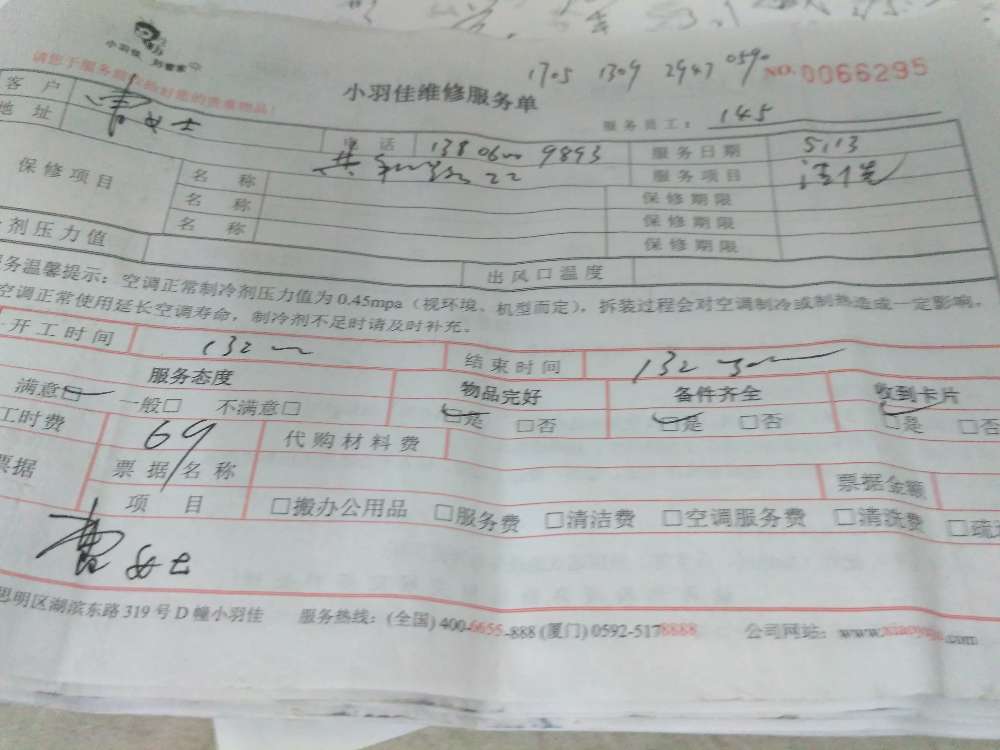 小羽佳 刘管家
1705 1309 2947 0590 NO. 0066295
小羽佳维修服务单
服务员工: 145
客户 女士 电话 服务日期 5.13
地址 服务项目 清洗
保修项目 名称 保修期限
名称 保修期限
名称 保修期限
剂压力值 出风口温度
务温馨提示:空调正常制冷剂压力值为0.45mpa(视环境、机型而定),拆装过程会对空调制冷或制热造成一定影响。
空调正常使用延长空调寿命,制冷剂不足时请及时补充。
开工时间 结束时间
服务态度 物品完好 备件齐全 收到卡片
满意□ 一般□ 不满意□ □是 □否 □是 □否 □是 □否
工时费 69 代购材料费
票据 票据名称 票据金额
项目 □搬办公用品 □服务费 □清洁费 □空调服务费 □清洗费
曹女士
思明区湖滨东路319号D幢小羽佳 服务热线:(全国)400-6655-888 (厦门)0592-5178888 公司网站: